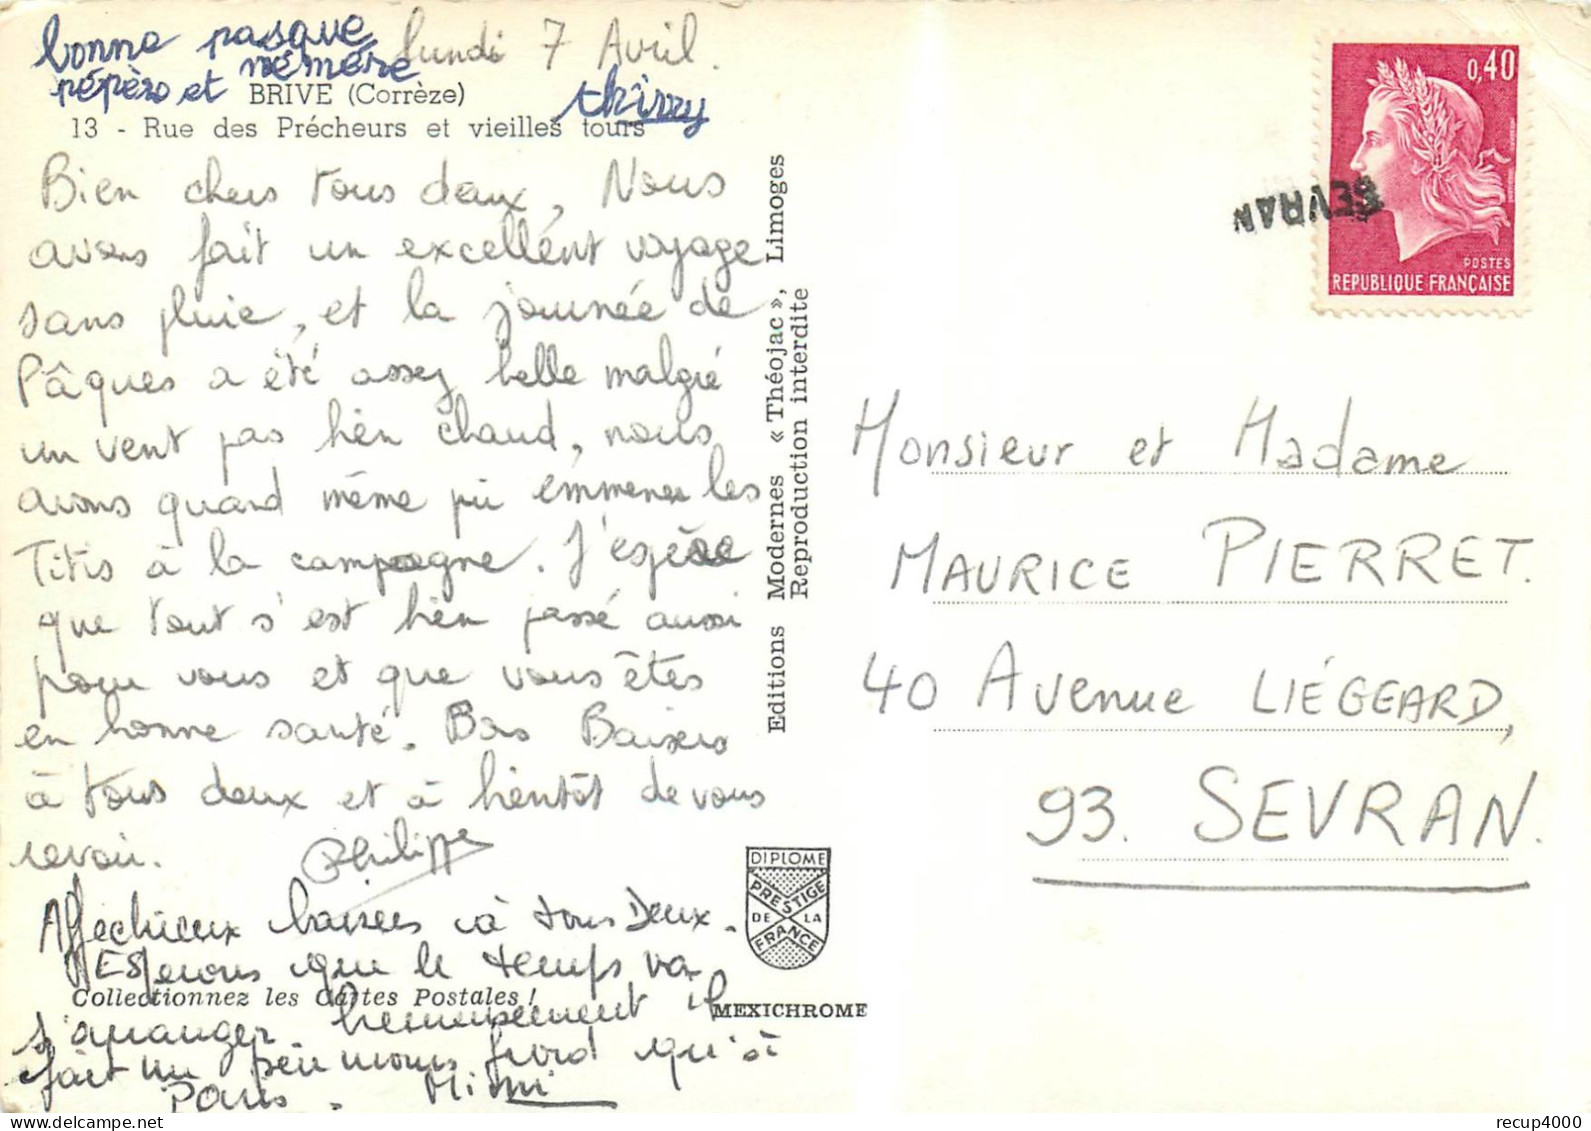 bonne pasque
pépère et mémère
thirry
lundi 7 Avril.
BRIVE (Corrèze)
13 - Rue des Précheurs et vieilles tours
Bien chers tous deux, Nous
avons fait un excellent voyage
sans pluie, et la journée de
Pâques a été assez belle malgré
un vent pas bien chaud, nous
avons quand même pu emmener les
Titis à la campagne. J'espère
que tout s'est bien passé aussi
pour vous et que vous êtes
en bonne santé. Bons Baisers
à tous deux et à bientôt de vous
revoir.
Philippe
Affectueux baisers à tous Deux.
Espérons que le temps va
s'arranger heureusement il
fait un peu moins froid qu'à
Paris. Mimi
Collectionnez les Cartes Postales !
Editions Modernes « Théojac », Limoges
Reproduction interdite
DIPLOME
PRESTIGE
DE LA
FRANCE
MEXICHROME
0,40
POSTES
REPUBLIQUE FRANÇAISE
SEVRAN
Monsieur et Madame
MAURICE PIERRET.
40 Avenue LIÉGEARD,
93. SEVRAN.
recup4000